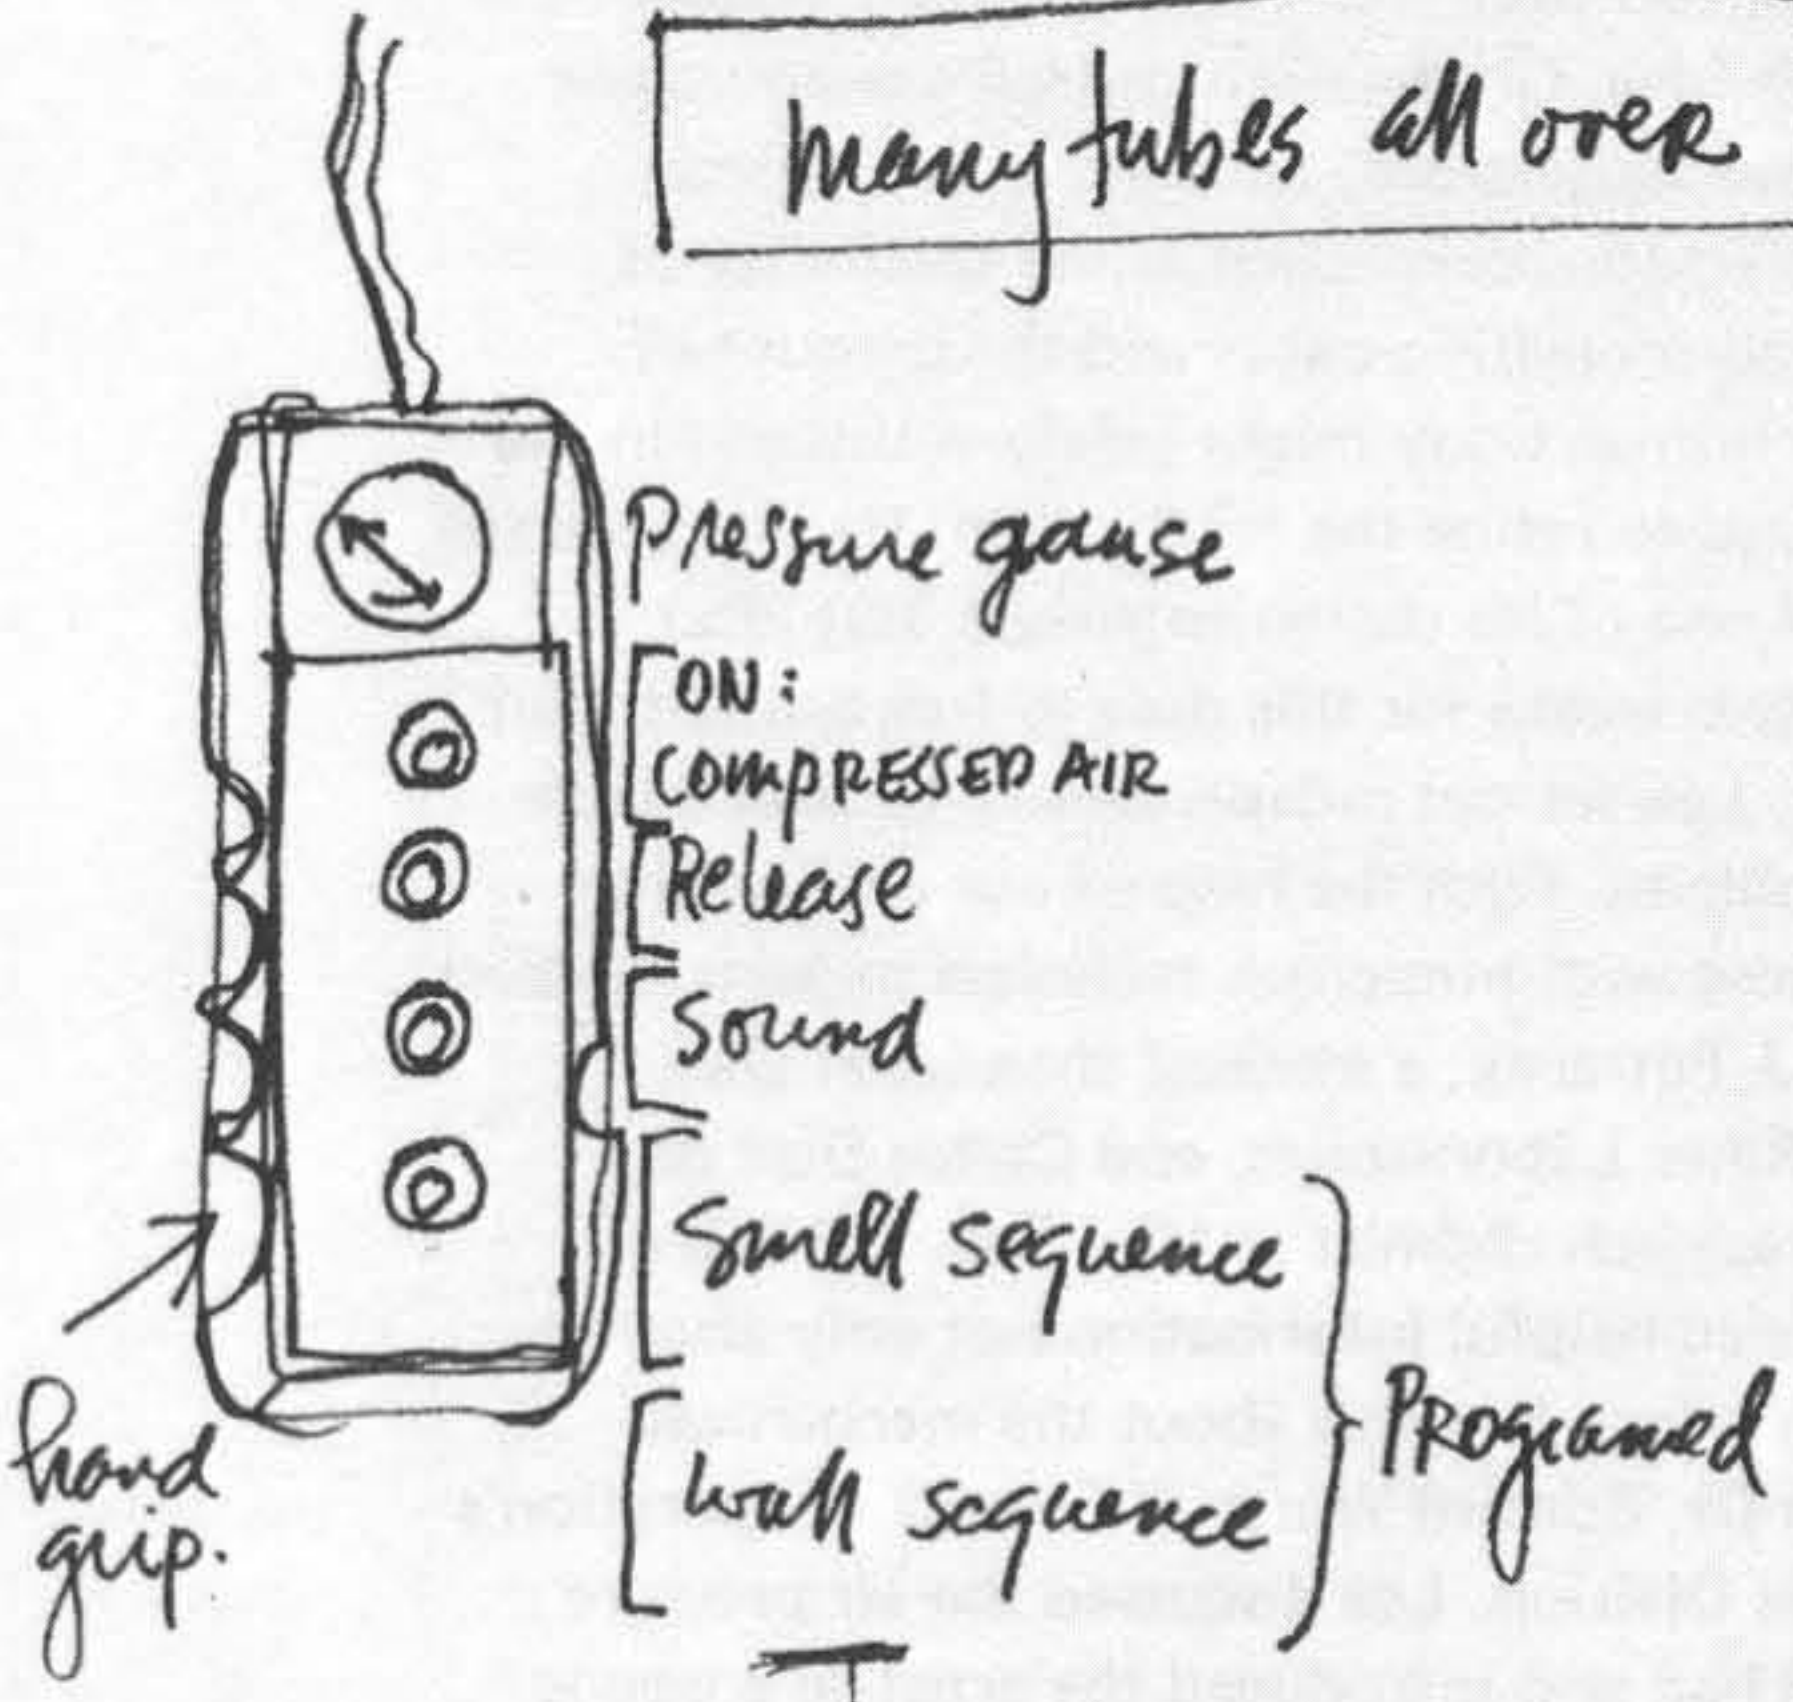 many tubes all over
Pressure gause
ON:
COMPRESSED AIR
Release
Sound
Smell sequence
wall sequence
Programed
hand
grip.